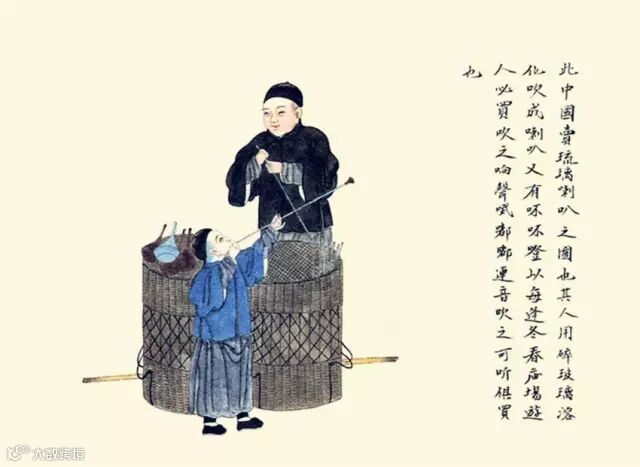 此中國賣琉璃喇叭之圖也其人用碎玻璃溶
化吹成喇叭又有咊咊噔以每逢冬春庙場遊
人必買吹之响聲嗚都都連音吹之可听俱買
也
大数跨境